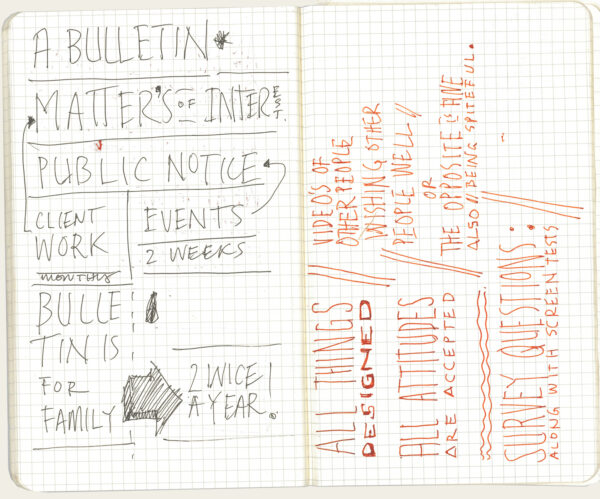 A BULLETIN
MATTER'S OF INTEREST.
PUBLIC NOTICE
CLIENT
WORK
MONTHS
EVENTS
2 WEEKS
BULLE
TIN IS
FOR
FAMILY
2 WICE
A YEAR
ALL THINGS
DESIGNED
ALL ATTITUDES
ARE ACCEPTED
// VIDEO'S OF
OTHER PEOPLE
WISHING OTHER
PEOPLE WELL //
OR
// THE OPPOSITE IS FINE
ALSO // BEING SPITEFUL.
SURVEY QUESTIONS: //
ALONG WITH SCREEN TESTS